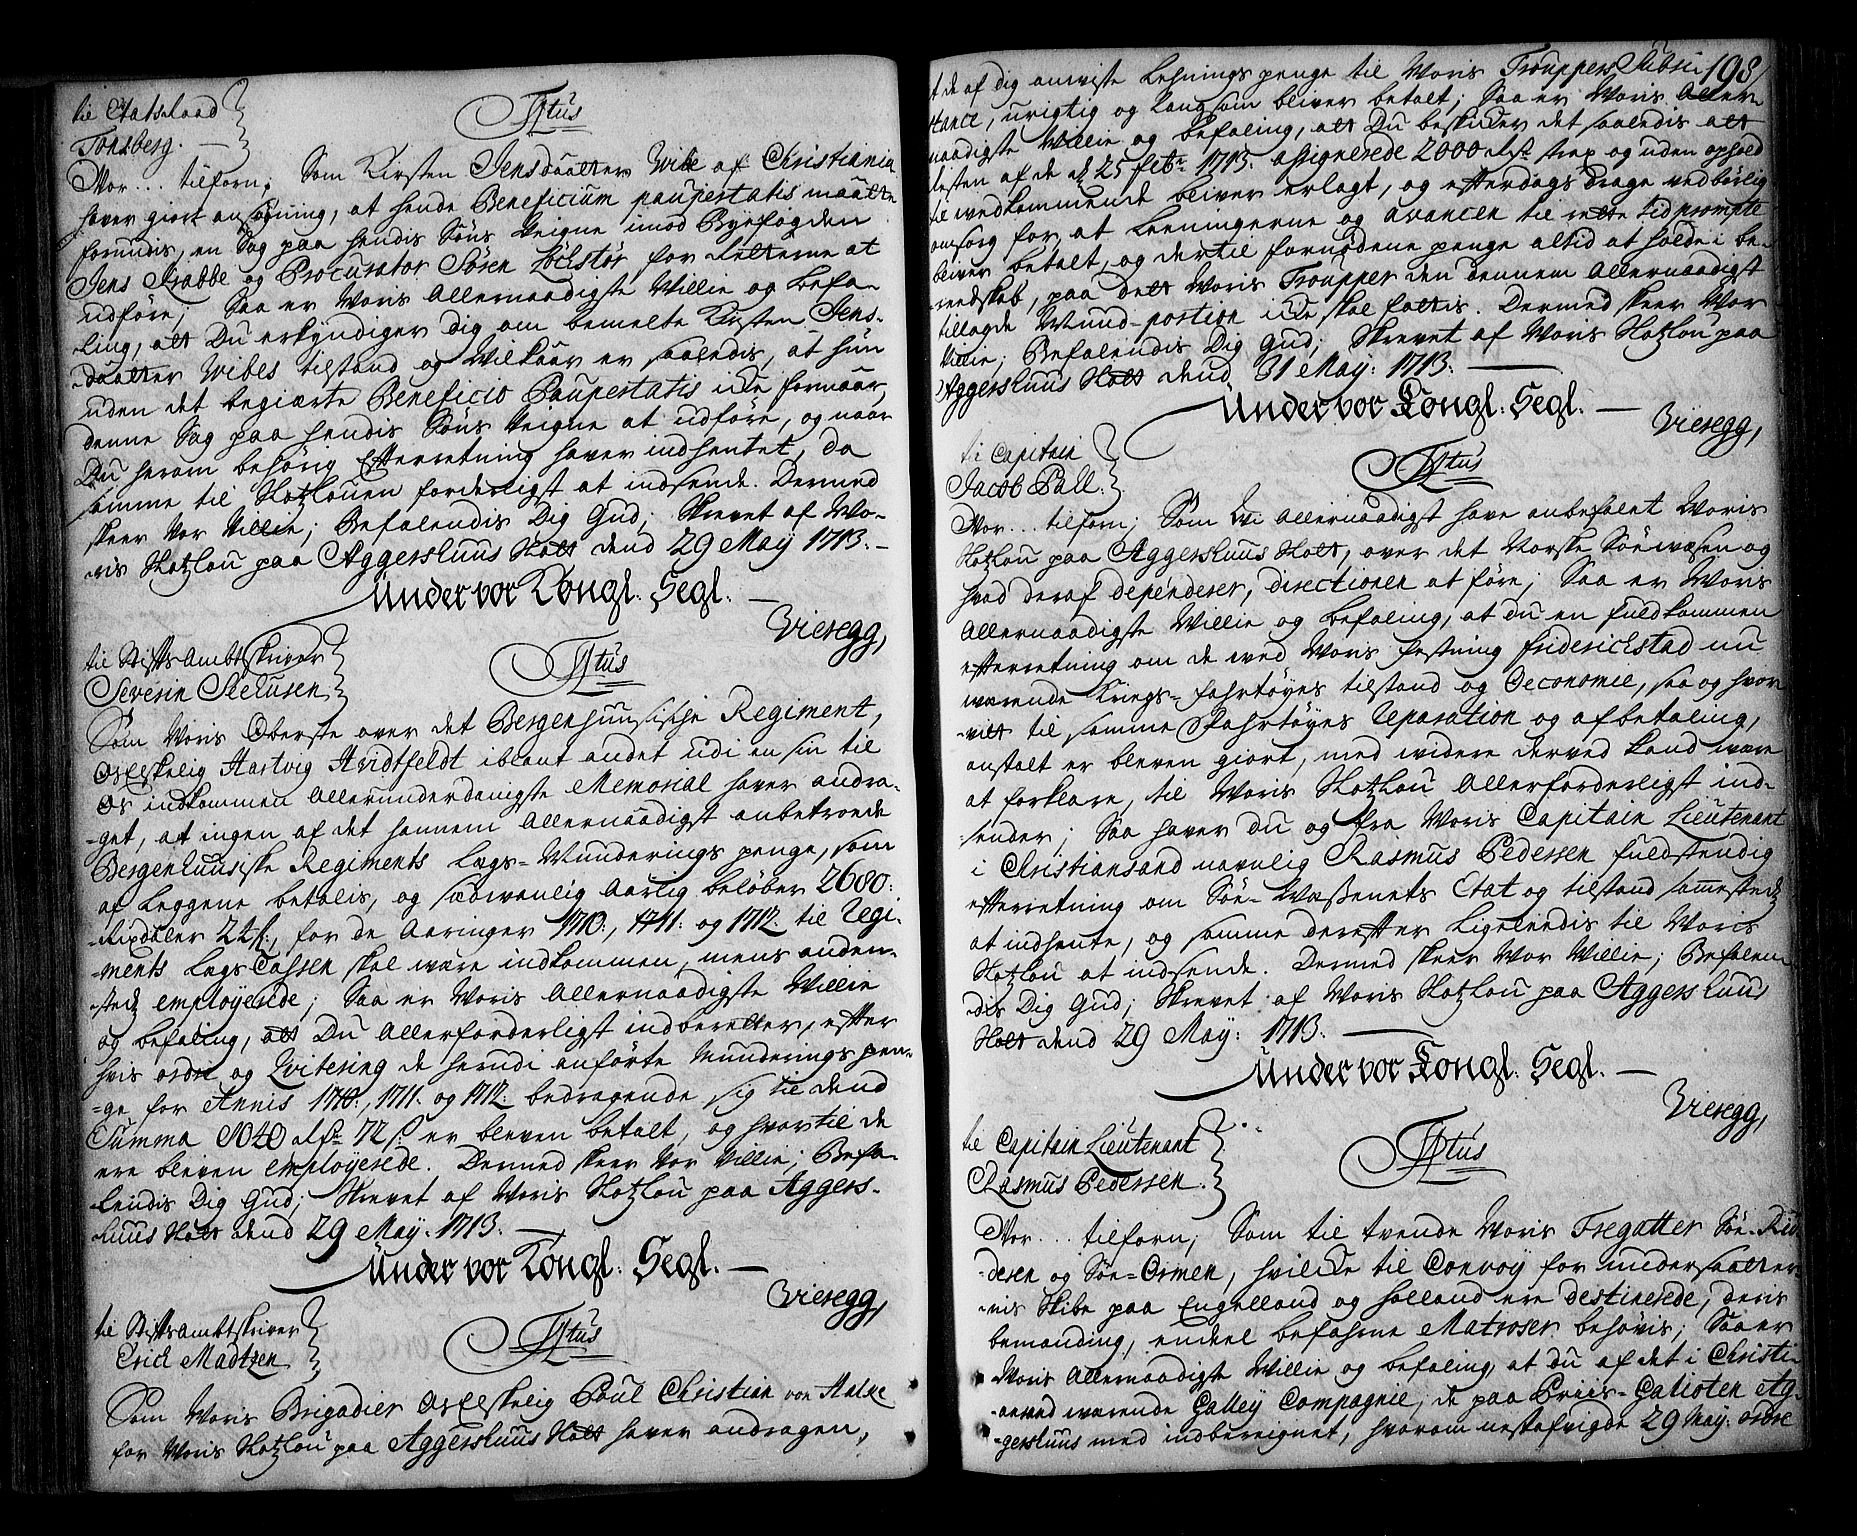 til Etatsraad
Tonsberg.
Ftus
Vor... tilforn; Som Kirsten Jensdaatter Wibe af Christiania
haver giort ansøgning, at hende Beneficium paupertatis maatte
forundis, en Sag paa hendis Søns Veigne imod Byefogden
Jens Krabbe og Procurator Søren for Retterne at
udføre; Saa er Voris Allernaadigste Villie og Befa-
ling, att Du erkyndiger dig om bemelte Kirsten Jens-
daatter Wibes tilstand og Vilkaar er saaledis, at hun
uden det begiærte Beneficio Paupertatis icke formaar
denne Sag paa hendis Søns Veigne at udføre, og naar
Du herom behørig Efterretning haver indhentet, da
samme til Slotzlouen forderligst at indsende. Dermed
skeer Vor Villie; Befalendis Dig Gud; Skrevet af Vo-
ris Slotzlou paa Aggershuus Slott dend 29 May 1713.
Under vor Kongl. Segl.
Vieregg,
til Stiftsambtskriver
Severin Seehusen
Ftus
Som Voris Oberste over det Bergenhuusische Regiment,
Os Elskelig Hartvig Hvidtfeldt iblant andet udi en sin til
Os indkommen Allerunderdanigste Memorial haver andra-
get, at ingen af det hannem Allernaadigst anbetroede
Bergenhuusiske Regiments Lægs-Munderings penge, som
af Leggene betalis, og sædvanlig Aarlig beløber 2680:
Rixdaler 24 s:, for de Aaringer 1710:, 1711: og 1712: til Regi-
ments Lægs Cassen skal være indkommen, mens anden-
stedz employerede; Saa er Voris Allernaadigste Villie
og befaling, att Du Allerforderligst indberetter, efter
hvis ordre og Qvitering de herudi anførte Munderings pen-
ge for Annis 1710:, 1711: og 1712: bedragende sig til dend
Summa 8040 Rdr 72 s: er bleven betalt, og hvortil de
ere bleven employerede. Dermed skeer Vor Villie; Befa-
lendis Dig Gud; Skrevet af Voris Slotzlou paa Aggers-
huus Slott dend 29 May: 1713.
Under vor Kongl. Segl.
Vieregg,
til Stiftsambtskriver
Erich Madtzen
Ftus
Som Voris Brigadier Os Elskelig Poul Christian von
for Voris Slotzlou paa Aggershuus Slott haver andragen,
198
at de af Dig anviste Lehnings penge til Voris Trouppers Subsi-
stance, urigtig og langsom bliver betalt; Saa er Voris Aller-
naadigste Villie og befaling, att Du beskicker det saaledis att
resten af de d. 25 febr. 1713. assignerede 2000 Rdr strax og uden ophold
til vedkommende bliver erlagt, og efterdags drage vedbørlig
omsorg for, at Leeningerne og avancen til rette tid prompte
bliver betalt, og dertil fornødene penge altid at holde i be-
redskab, paa dett Voris Troupper den dennem Allernaadigst
tillagde Mund-portion icke skal fattis. Dermed skeer Vor
Villie; Befalendis Dig Gud; Skrevet af Voris Slotzlou paa
Aggershuus Slott dend 31 May: 1713.
Under vor Kongl. Segl.
Vieregg,
til Capitain
Jacob Pall.
Ftus
Vor... tilforn; Som Wi Allernaadigst have anbefalet Voris
Slotzlou paa Aggershuus Slott, over det Norske Søewæsen og
hvad deraf dependerer, directionen at føre; Saa er Voris
Allernaadigste Villie og befaling, at Du en fuldkommen
efterretning om de ved Voris festning Friderichstad nu
værende Kriegs-fahrtøyes tilstand og Oeconomie, saa og hvor
vitt til samme Fahrtøyes Reparation og afbetaling,
anstalt er bleven giort, med widere derved kand være
at forklare, til Voris Slotzlou Allerforderligst ind-
sender; Saa haver Du og fra Voris Capitain Lieutenant
i Christiansand navnlig Rasmus Pedersen fuldstendig
efterretning om Søe-Wæßenets Etat og tilstand sammestedz
at indhente, og samme derefter Ligeledis til Voris
Slotzlou at indsende. Dermed skeer Vor Villie; Befalen-
dis Dig Gud; Skrevet af Voris Slotzlou paa Aggershuus
Slott dend 29 May: 1713.
Under vor Kongl. Segl.
Vieregg,
til Capitain Lieutenant
Rasmus Pedersen.
Ftus
Vor... tilforn; Som til tvende Voris Fregatter Søe-Rid-
deren og Søe-Ormen, hvilcke til Convoy for undersaatter-
nis Skibe paa Engelland og Holland ere destinerede, deris
bemanding, endeel befahrne Matroser behøvis; Saa er
Voris Allernaadigste Villie og befaling, at Du af det i Christi-
ansand værende Galley Compagnie, de paa Priis-Galioten Ag-
gershuus med indbereignet, hvorom nestafvigde 29 May: ordre